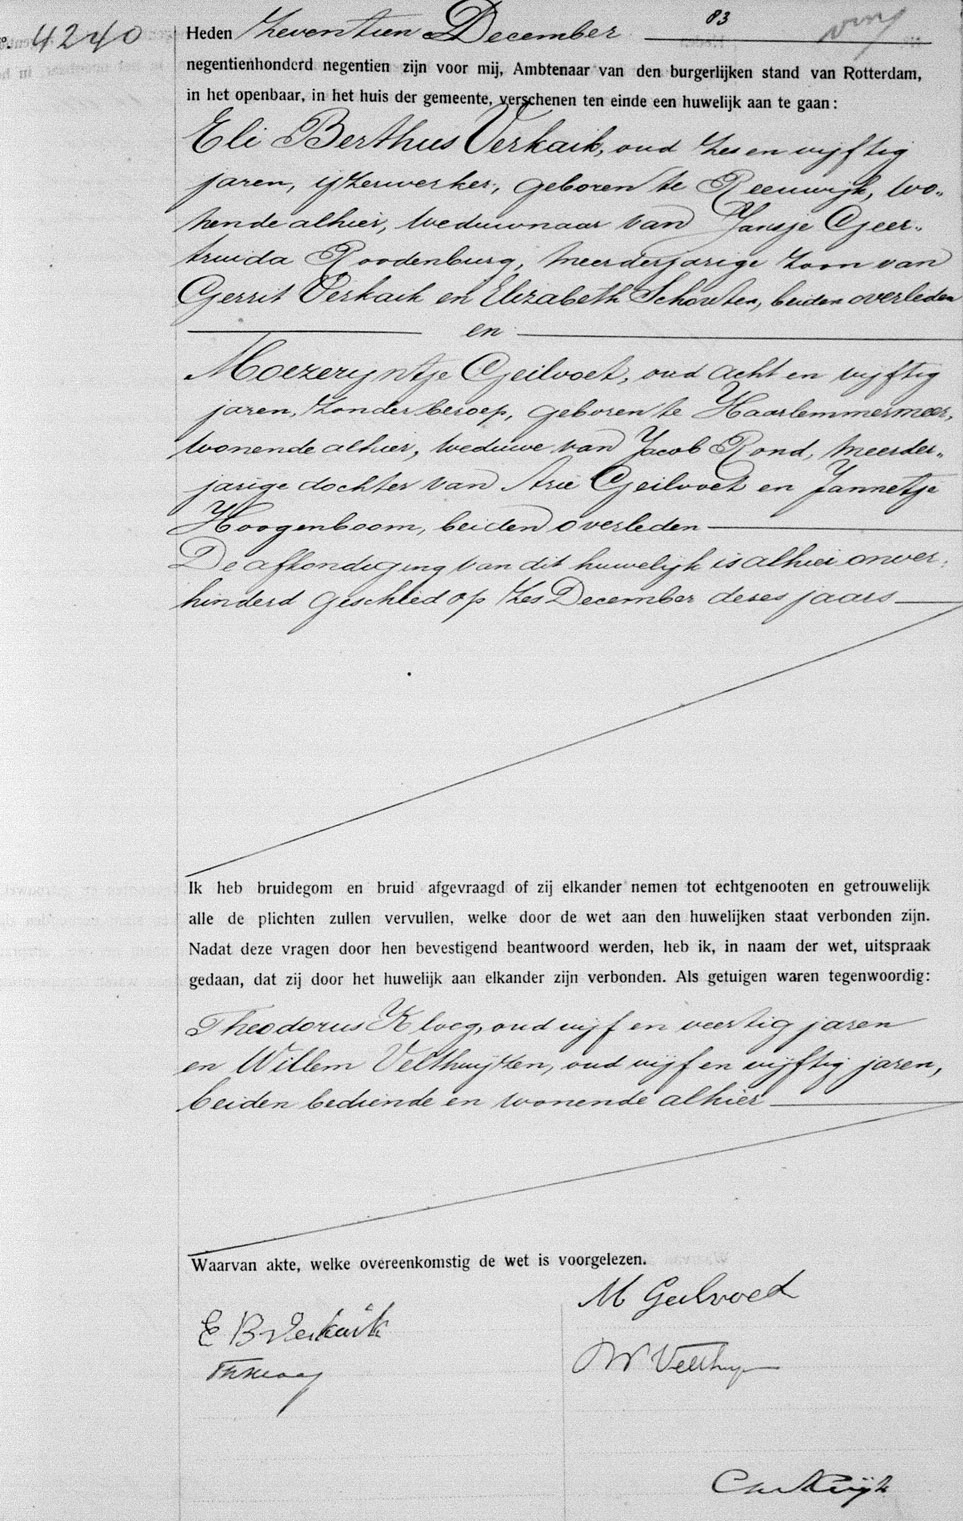 4240
83
Heden zeventien December
negentienhonderd negentien zijn voor mij, Ambtenaar van den burgerlijken stand van Rotterdam,
in het openbaar, in het huis der gemeente, verschenen ten einde een huwelijk aan te gaan:
Eli Berthus Verkaik, oud zes en vijftig
jaren, ijzerwerker, geboren te Reeuwijk, wo„
nende alhier, weduwnaar van Jansje Geer„
truida Roodenburg, meerderjarige zoon van
Gerrit Verkaik en Elizabeth Schouten, beiden overleden
en
Moezerijntje Geilvoet, oud acht en vijftig
jaren, zonder beroep, geboren te Haarlemmermeer,
wonende alhier, weduwe van Jacob Rond, meerder„
jarige dochter van Arie Geilvoet en Jannetje
Hoogenboom, beiden overleden
De afkondiging van dit huwelijk is alhier onver„
hinderd geschied op zes December dezes jaars
Ik heb bruidegom en bruid afgevraagd of zij elkander nemen tot echtgenooten en getrouwelijk
alle de plichten zullen vervullen, welke door de wet aan den huwelijken staat verbonden zijn.
Nadat deze vragen door hen bevestigend beantwoord werden, heb ik, in naam der wet, uitspraak
gedaan, dat zij door het huwelijk aan elkander zijn verbonden. Als getuigen waren tegenwoordig:
Theodorus Kloeg, oud vijf en veertig jaren
en Willem Velthuijzen, oud vijf en vijftig jaren,
beiden bediende en wonende alhier
Waarvan akte, welke overeenkomstig de wet is voorgelezen.
M Geilvoed
E B Verkaik